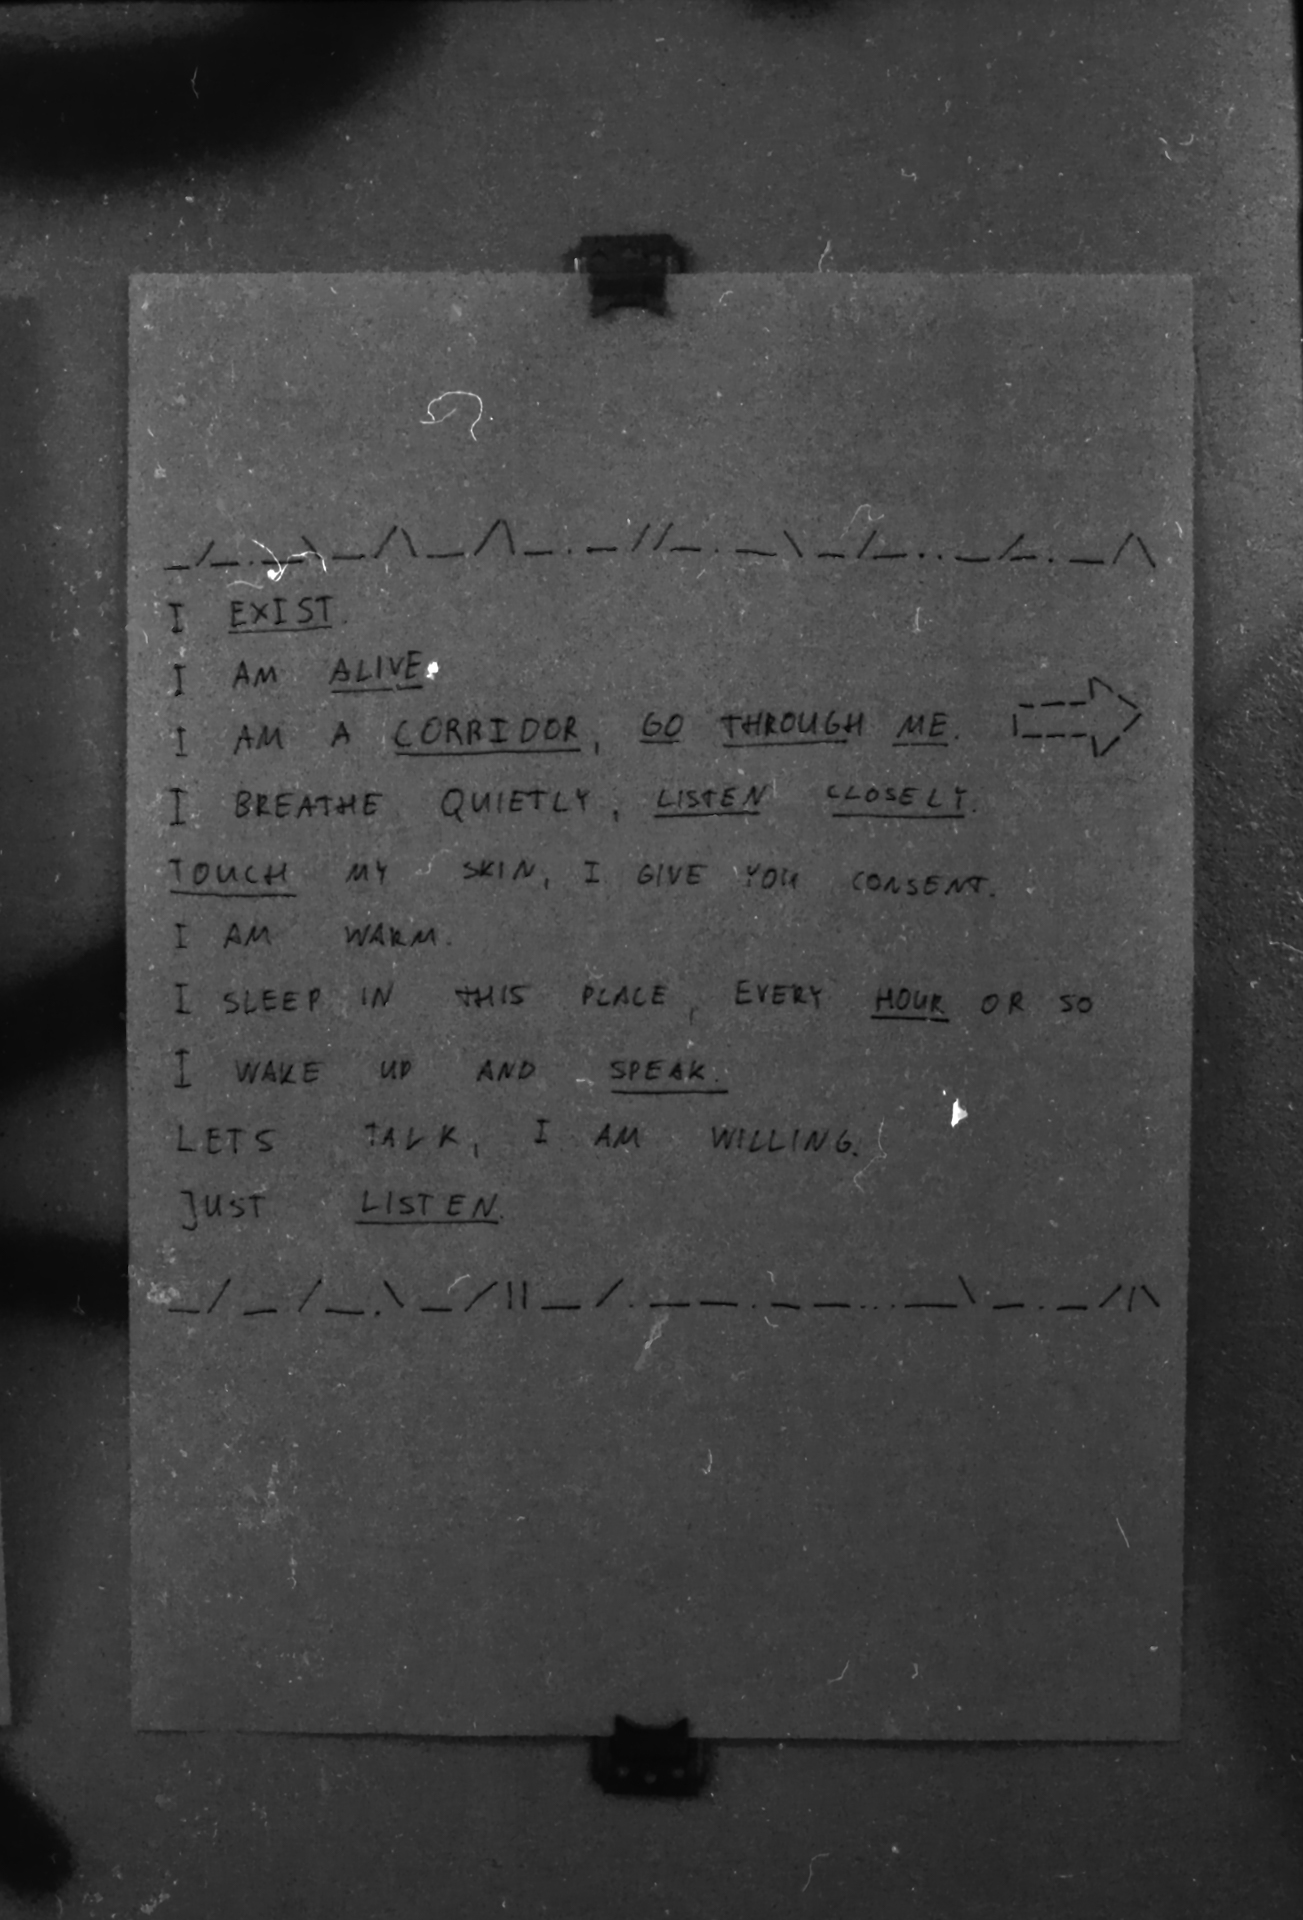 I EXIST.
I AM ALIVE.
I AM A CORRIDOR, GO THROUGH ME.
I BREATHE QUIETLY, LISTEN CLOSELY.
TOUCH MY SKIN, I GIVE YOU CONSENT.
I AM WARM.
I SLEEP IN THIS PLACE, EVERY HOUR OR SO
I WAKE UP AND SPEAK.
LETS TALK, I AM WILLING.
JUST LISTEN.